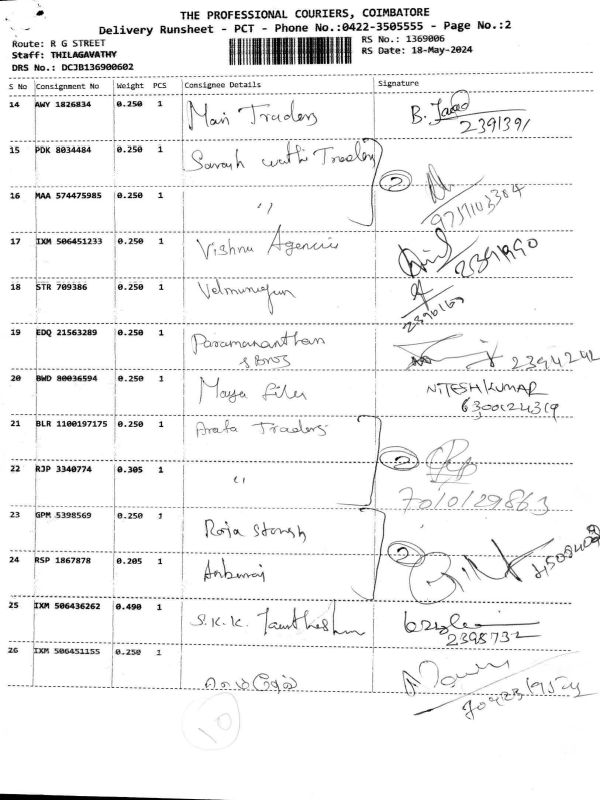 THE PROFESSIONAL COURIERS, COIMBATORE
Delivery Runsheet - PCT - Phone No.:0422-3505555 - Page No.:2
Route: R G STREET
Staff: THILAGAVATHY
DRS No.: DCJB136900602
RS No.: 1369006
RS Date: 18-May-2024
S No Consignment No Weight PCS Consignee Details Signature
14 AWY 1826834 0.250 1 Mani Traders B.
2391391
15 PDK 8034484 0.250 1 Traders 2
16 MAA 574475985 0.250 1 "
17 IXM 506451233 0.250 1 Vishnu Agencies
18 STR 709386 0.250 1 Velmurugan
19 EDQ 21563289 0.250 1 Paramananthan
& Bros 2394242
20 BWD 80036594 0.250 1 Maya NITESH KUMAR
6300124319
21 BLR 1100197175 0.250 1 Arafa Traders 2
22 RJP 3340774 0.305 1 "
7010129863
23 GPM 5398569 0.250 1 Roja
24 RSP 1867878 0.205 1 2
25 IXM 506436262 0.490 1 S.K.K.
2395732
26 IXM 506451155 0.250 1
10